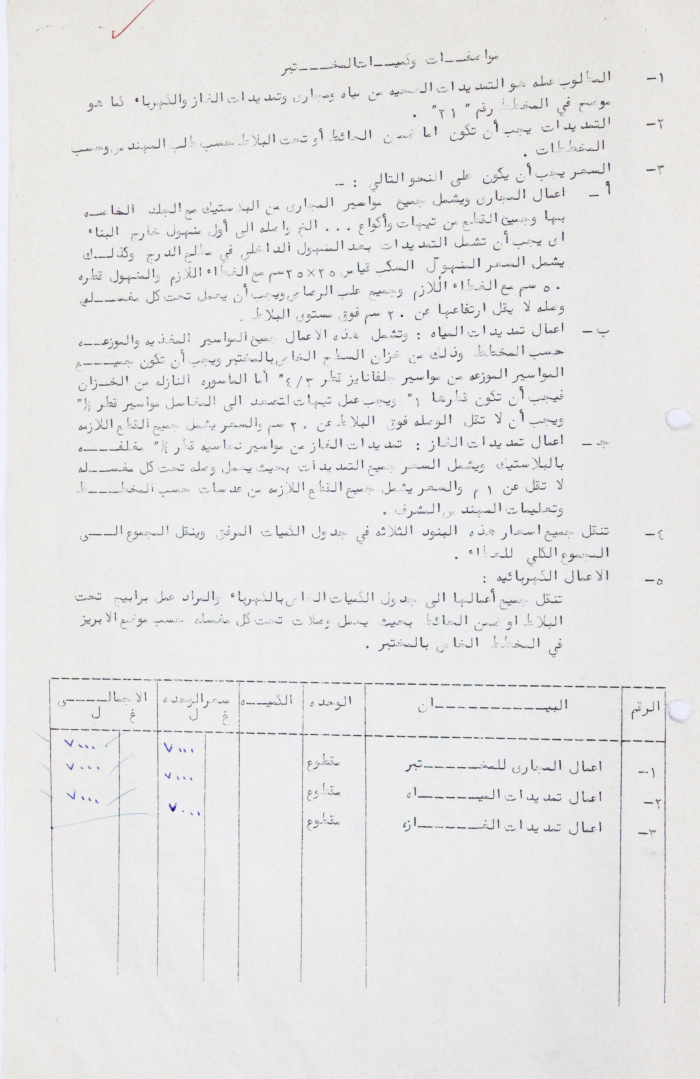 مواصفات وكميات المختبر
١- المطلوب عمله هو التمديدات الصحيه من مياه ومجارى وتمديدات الغاز والكهرباء كما هو
موضح في المخطط رقم " ٢١ " .
٢- التمديدات يجب أن تكون اما ضمن الحائط أو تحت البلاط حسب طلب المهندس وحسب
المخططات .
٣- السعر يجب أن يكون على النحو التالي : -
أ - اعمال المجارى ويشمل جميع مواسير المجارى من البلاستيك مع الجلد الخاصه
بها وجميع القطع من تيهات وأكواع ... الخ واصله الى أول منهول خارج البناء
اى يجب أن تشمل التمديدات بعد المنهول الداخلي في مطلع الدرج وكذلك
يشمل السعر المنهول السكب قياس ٢٥×٢٥ سم مع الغطاء اللازم والمنهول قطره
٥٠ سم مع الغطاء اللازم وجميع علب الرصاص ويجب أن يعمل تحت كل مغسله
وصله لا يقل ارتفاعها عن ٢٠ سم فوق مستوى البلاط .
ب - اعمال تمديدات المياه : وتشمل هذه الاعمال جميع المواسير المغذيه والموزعه
حسب المخطط وذلك من خزان السطح الخاص بالمختبر ويجب أن تكون جميع
المواسير الموزعه من مواسير جلفانايز قطر ٣/٤" أما الماسوره النازله من الخزان
فيجب أن تكون قطرها ١" ويجب عمل تيهات لتصعد الى المغاسل مواسير قطر ½"
ويجب أن لا تقل الوصله فوق البلاط عن ٢٠ سم والسعر يشمل جميع القطع اللازمه
جـ - اعمال تمديدات الغاز : تمديدات الغاز من مواسير نحاسيه قطر ½" مغلفه
بالبلاستيك ويشمل السعر جميع التمديدات بحيث يعمل وصله تحت كل مغسله
لا تقل عن ١ م والسعر يشمل جميع القطع اللازمه من عدسات حسب المخطط
وتعليمات المهندس المشرف .
٤- تنقل جميع اسعار هذه البنود الثلاثه في جدول الكميات المرفق وينقل المجموع الى
المجموع الكلي للعطاء .
٥- الاعمال الكهربائيه :
تنقل جميع أعمالها الى جدول الكميات الخاص بالكهرباء والمراد عمل برابيج تحت
البلاط او ضمن الحائط بحيث يعمل وصلات تحت كل مغسله حسب موضع الابريز
في المخطط الخاص بالمختبر .
الرقم البيان الوحده الكميه سعر الوحده الاجمالي
غ ل غ ل
١- اعمال المجارى للمختبر مقطوع ٧٠٠٠ ٧٠٠٠
٢- اعمال تمديدات المياه مقطوع ٧٠٠٠ ٧٠٠٠
٣- اعمال تمديدات الغازه مقطوع ٧٠٠٠ ٧٠٠٠